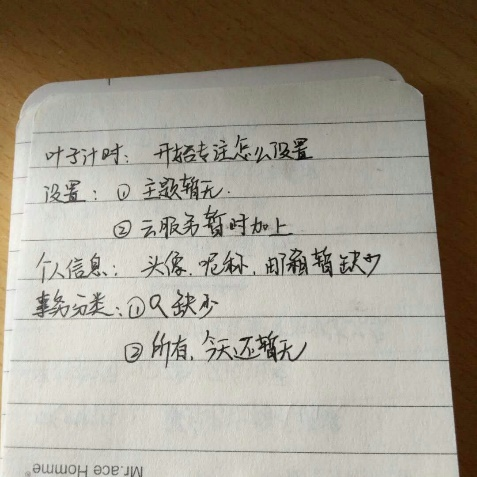 叶子计时：开始专注怎么设置
设置：① 主题暂无.
② 云服务暂时加上
个人信息：头像，昵称，邮箱暂缺少
事务分类：①Q缺少
②所有，今天还暂无
Mr.ace Homme®